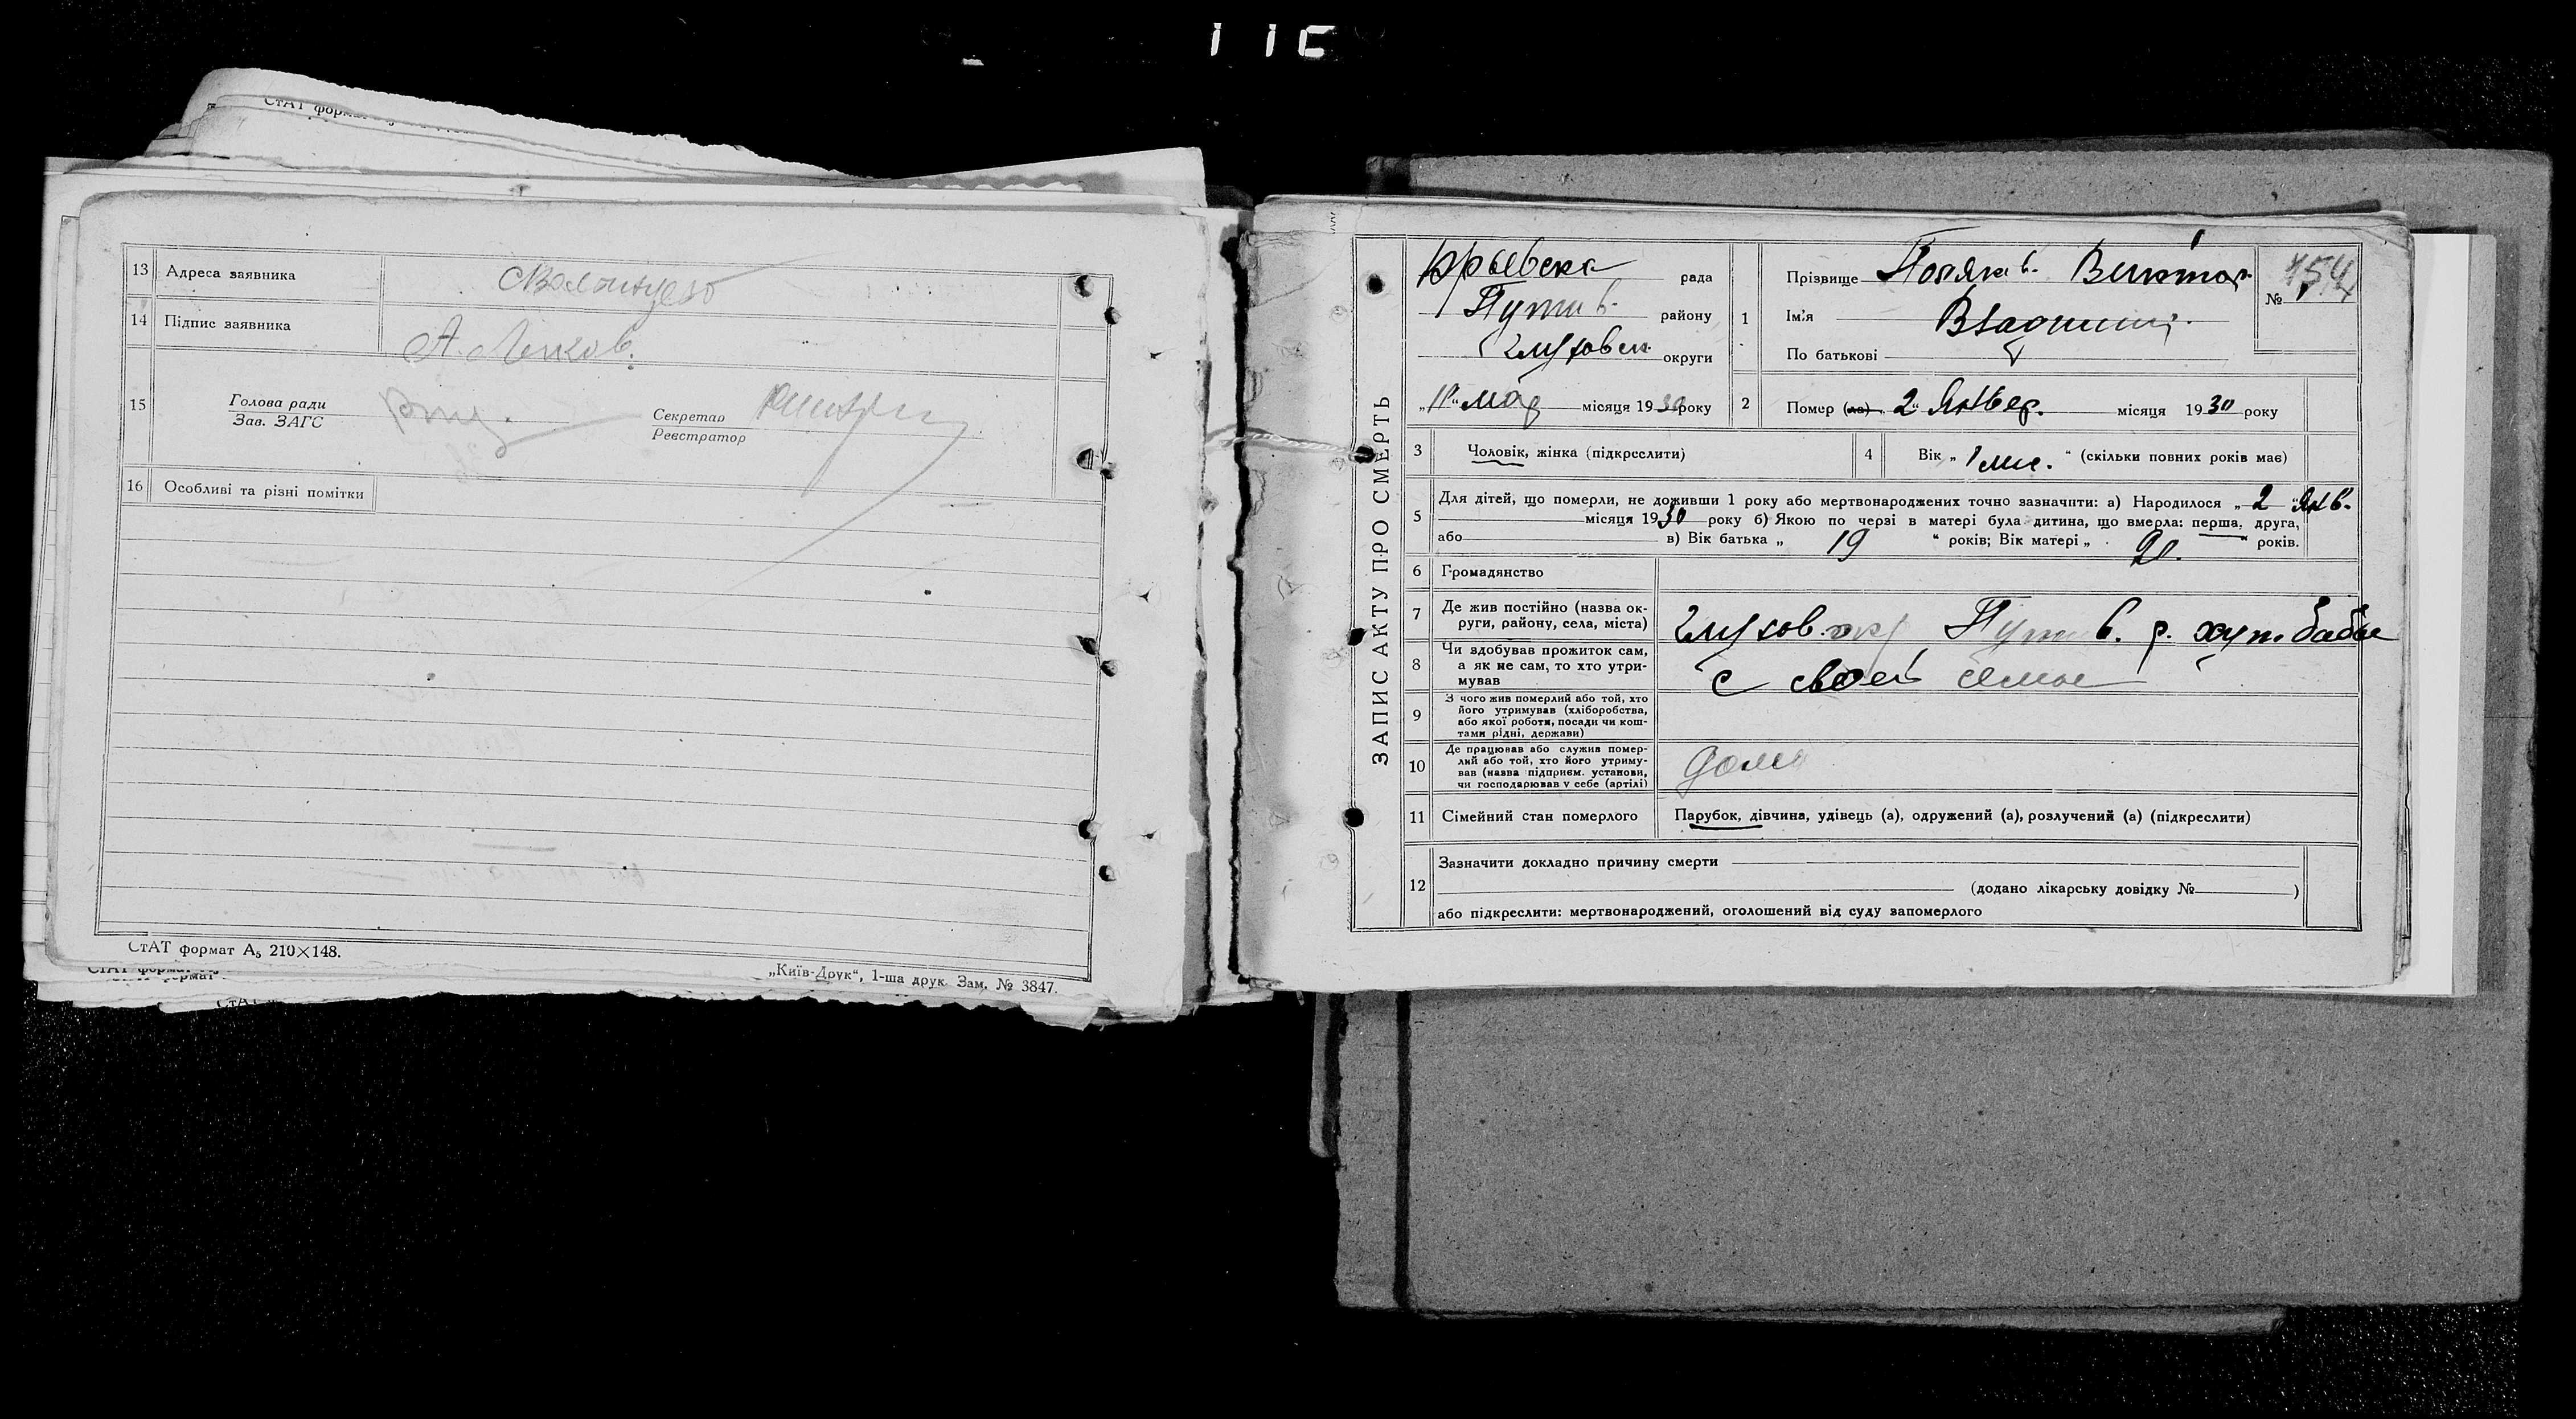 СтАТ формат
13 Адреса заявника
14 Підпис заявника А.
15 Голова ради
Зав. ЗАГС
Секретар
Реєстратор
16 Особливі та різні помітки
СтАТ формат А₅ 210×148.
„Київ-Друк“, 1-ша друк. Зам. № 3847.
ЗАПИС АКТУ ПРО СМЕРТЬ
рада
Путив. району
Глуховск. округи
„11“ мая місяця 1930 року
1 Прізвище Поляков. Виктор.
Ім'я Владимир.
По батькові
№ 154
2 Помер (ла) „2“ Январ. місяця 1930 року
3 Чоловік, жінка (підкреслити)
4 Вік „1 мис.“ (скільки повних років має)
5 Для дітей, що померли, не доживши 1 року або мертвонароджених точно зазначити: а) Народилося „2“ Янв.
місяця 1930 року б) Якою по черзі в матері була дитина, що вмерла: перша, друга,
або в) Вік батька „19“ років; Вік матері „ “ років.
6 Громадянство
7 Де жив постійно (назва ок-
руги, району, села, міста) Глухов. окр Путив. р. хут. Бабье
8 Чи здобував прожиток сам,
а як не сам, то хто утри-
мував с своей семье
9 З чого жив померлий або той, хто
його утримував (хліборобства,
або якої роботи, посади чи кош-
тами рідні, держави)
10 Де працював або служив помер-
лий або той, хто його утриму-
вав (назва підприєм. установи,
чи господарював у себе (артілі) дома
11 Сімейний стан померлого Парубок, дівчина, удівець (а), одружений (а), розлучений (а) (підкреслити)
12 Зазначити докладно причину смерти
(додано лікарську довідку № )
або підкреслити: мертвонароджений, оголошений від суду запомерлого